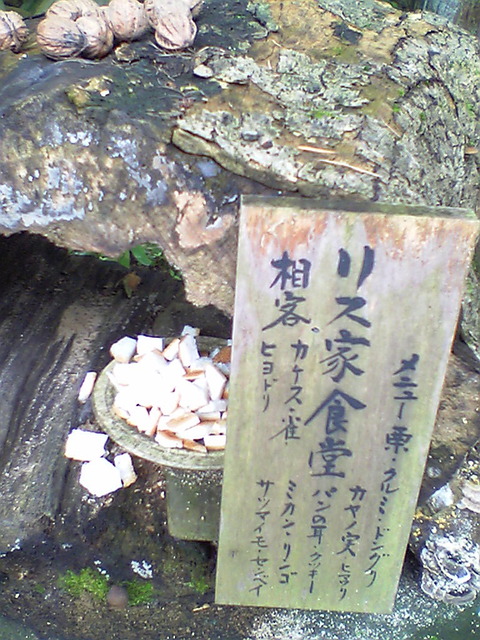 リス家食堂
相客 カケス・雀
ヒヨドリ
メニュー 栗・クルミ・ドングリ
カヤノ実 ヒマワリ
パンの耳・クッキー
ミカン・リンゴ
サツマイモ・センベイ